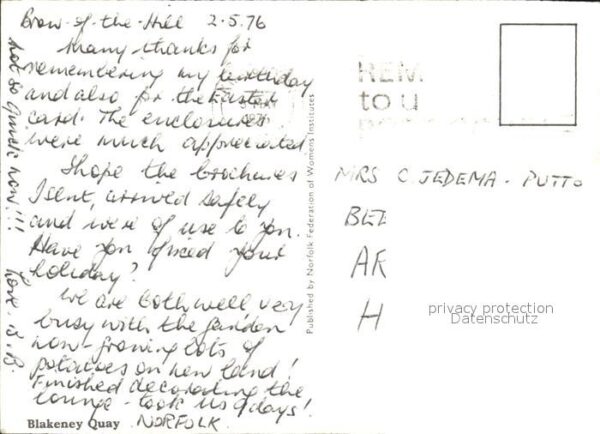 Brow-of-the-Hill 2.5.76
Many thanks for
remembering my birthday
and also for the Easter
card. The enclosures
were much appreciated.
I hope the brochures
I sent, arrived safely
and were of use to you.
Have you fixed your
holiday?
We are both well very
busy with the garden
now - growing lots of
potatoes on new land!
Finished decorating the
lounge - took us 9 days!
Blakeney Quay NORFOLK.
not so quick now!!!
Love
Published by Norfolk Federation of Womens Institutes
REM
to u
MRS C. JEDEMA - PUTTO
BEE
AR
H
privacy protection
Datenschutz